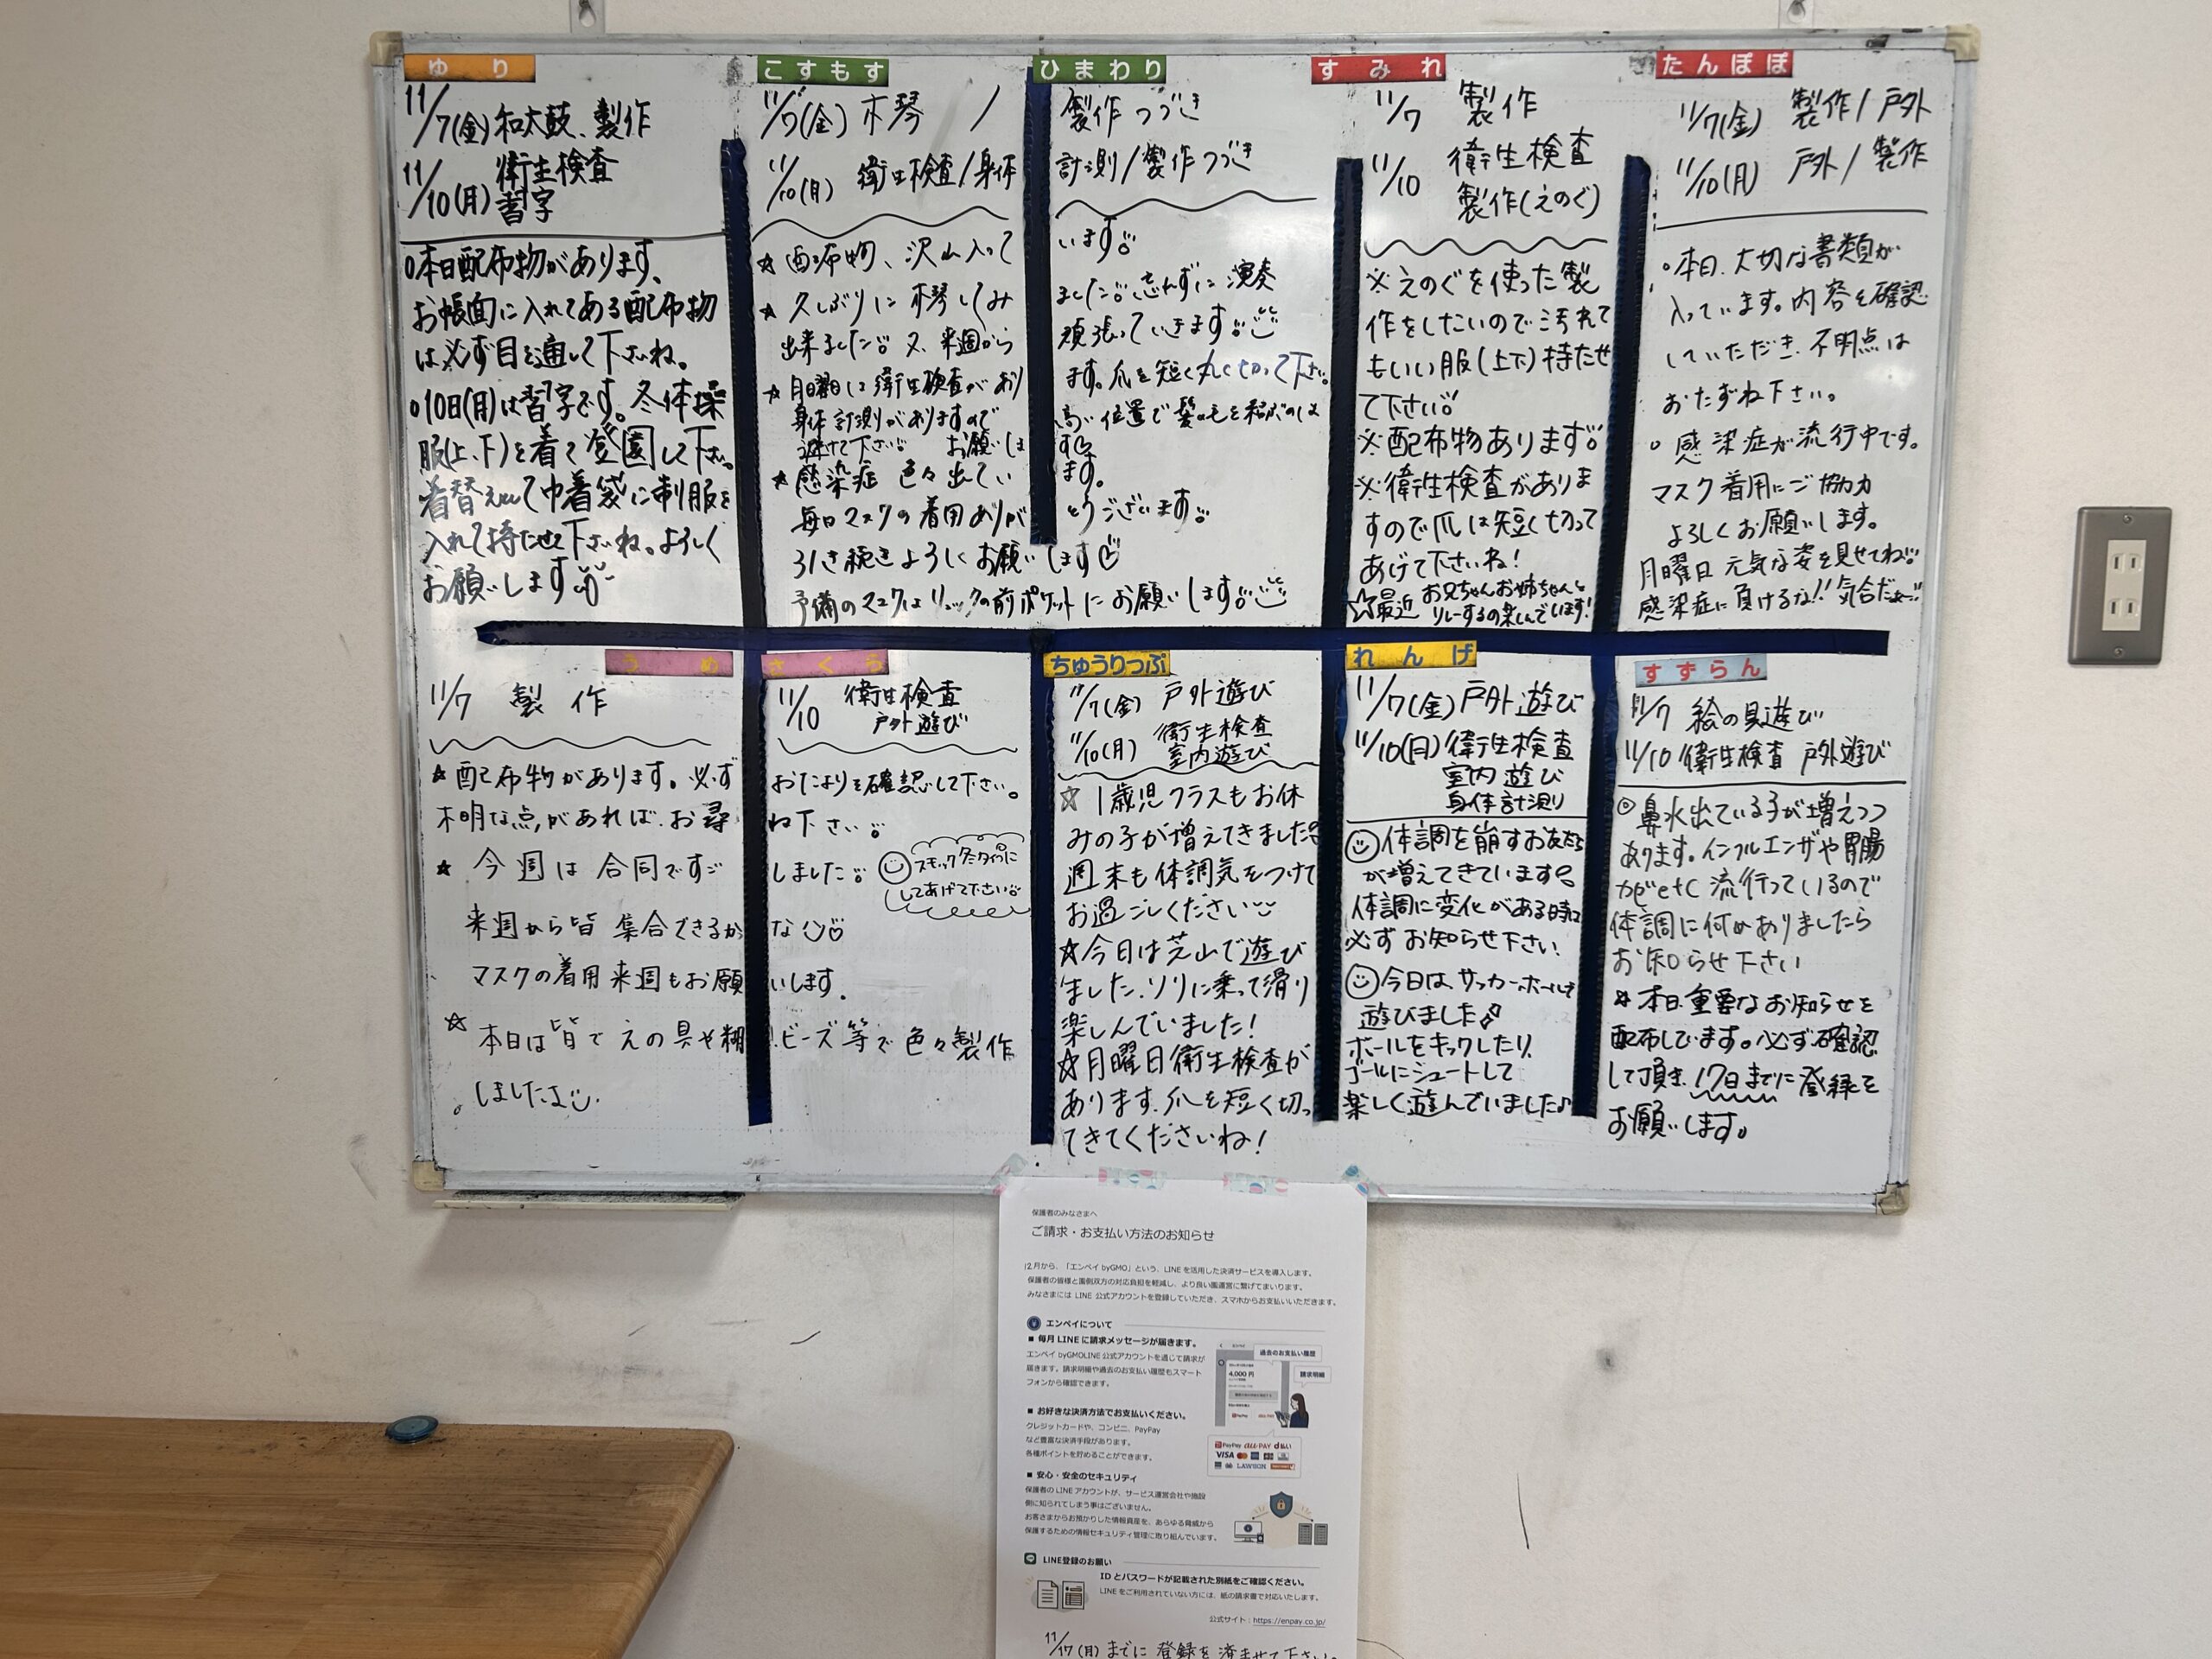 ゆり
11/7(金)和太鼓、製作
11/10(月) 衛生検査
習字
○本日配布物があります。
お帳面に入れてある配布物
は必ず目を通して下さいね。
○10日(月)は習字です。冬体操
服(上、下)を着て登園して下さい。
着替えとして巾着袋に制服を
入れて持たせて下さいね。よろしく
お願いします
こすもす
ひまわり
11/7(金) 木琴 / 製作つづき
11/10(月) 衛生検査/身体計測/製作つづき
☆ 配布物、沢山入っています。
☆ 久しぶりに木琴してみました。忘れずに演奏
出来ました。又、来週から頑張っていきます。
☆ 月曜日は衛生検査があります。爪を短く丸く切って下さい。
身体計測がありますので高い位置で髪の毛を結ぶのは
避けて下さい。お願いします
☆ 感染症 色々出ています。
毎日マスクの着用ありがとうございます。
引き続きよろしくお願いします
予備のマスクはリュックの前ポケットにお願いします。
すみれ
11/7 製作
11/10 衛生検査
製作(えのぐ)
※えのぐを使った製
作をしたいので汚れて
もいい服(上下)持たせ
て下さい
※配布物あります。
※衛生検査がありま
すので爪は短く切って
あげて下さいね!
☆最近 お兄ちゃんお姉ちゃんと
リレーするの楽しんでいます!
たんぽぽ
11/7(金) 製作/戸外
11/10(月) 戸外/製作
○本日、大切な書類が
入っています。内容を確認
していただき、不明点は
おたずね下さい。
○感染症が流行中です。
マスク着用にご協力
よろしくお願いします。
月曜日 元気な姿を見せてね
感染症に負けるな!!気合だぁー!!
うめ
さくら
11/7 製作
11/10 衛生検査
戸外遊び
☆配布物があります。必ずおたよりを確認して下さい。
不明な点があれば、お尋ね下さい。
☆ 今週は合同ですごしました。
来週から皆集合できるかな
マスクの着用来週もお願いします。
☆ 本日は皆でえの具や糊、ビーズ等で色々製作
しました
スモック冬タイプに
してあげて下さい
ちゅうりっぷ
11/7(金) 戸外遊び
11/10(月) 衛生検査
室内遊び
☆1歳児クラスもお休
みの子が増えてきました
週末も体調気をつけて
お過ごしください
☆今日は芝山で遊び
ました。ソリに乗って滑り
楽しんでいました!
☆月曜日衛生検査が
あります。爪を短く切っ
てきてくださいね!
れんげ
11/7(金)戸外遊び
11/10(月)衛生検査
室内遊び
身体計測
体調を崩すお友だち
が増えてきています。
体調に変化がある時は
必ずお知らせ下さい!
今日は、サッカーボールで
遊びました♪
ボールをキックしたり、
ゴールにシュートして
楽しく遊んでいました♪
すずらん
11/7 絵の具遊び
11/10 衛生検査 戸外遊び
◎鼻水出ている子が増えつつ
あります。インフルエンザや胃腸
かぜetc 流行っているので
体調に何かありましたら
お知らせ下さい
☆本日重要なお知らせを
配布しています。必ず確認
して頂き、17日までに登録を
お願いします。
保護者のみなさまへ
ご請求・お支払い方法のお知らせ
12月から、「エンペイ byGMO」という、LINEを活用した決済サービスを導入します。
保護者の皆様と園側双方の対応負担を軽減し、より良い園運営に繋げてまいります。
みなさまには LINE 公式アカウントを登録していただき、スマホからお支払いいただきます。
エンペイについて
■ 毎月LINEに請求メッセージが届きます。
エンペイ byGMOLINE公式アカウントを通じて請求が
届きます。請求明細や過去のお支払い履歴もスマート
フォンから確認できます。
過去のお支払い履歴
4,000 円
請求明細
■ お好きな決済方法でお支払いください。
クレジットカードや、コンビニ、PayPay
など豊富な決済手段があります。
各種ポイントを貯めることができます。
PayPay au PAY d払い
VISA
LAWSON
■ 安心・安全のセキュリティ
保護者のLINEアカウントが、サービス運営会社や施設
側に知られてしまう事はございません。
お客さまからお預かりした情報資産を、あらゆる脅威から
保護するための情報セキュリティ管理に取り組んでいます。
LINE登録のお願い
IDとパスワードが記載された別紙をご確認ください。
LINEをご利用されていない方には、紙の請求書で対応いたします。
公式サイト:https://enpay.co.jp/
11/17(月)までに 登録を済ませて下さい。